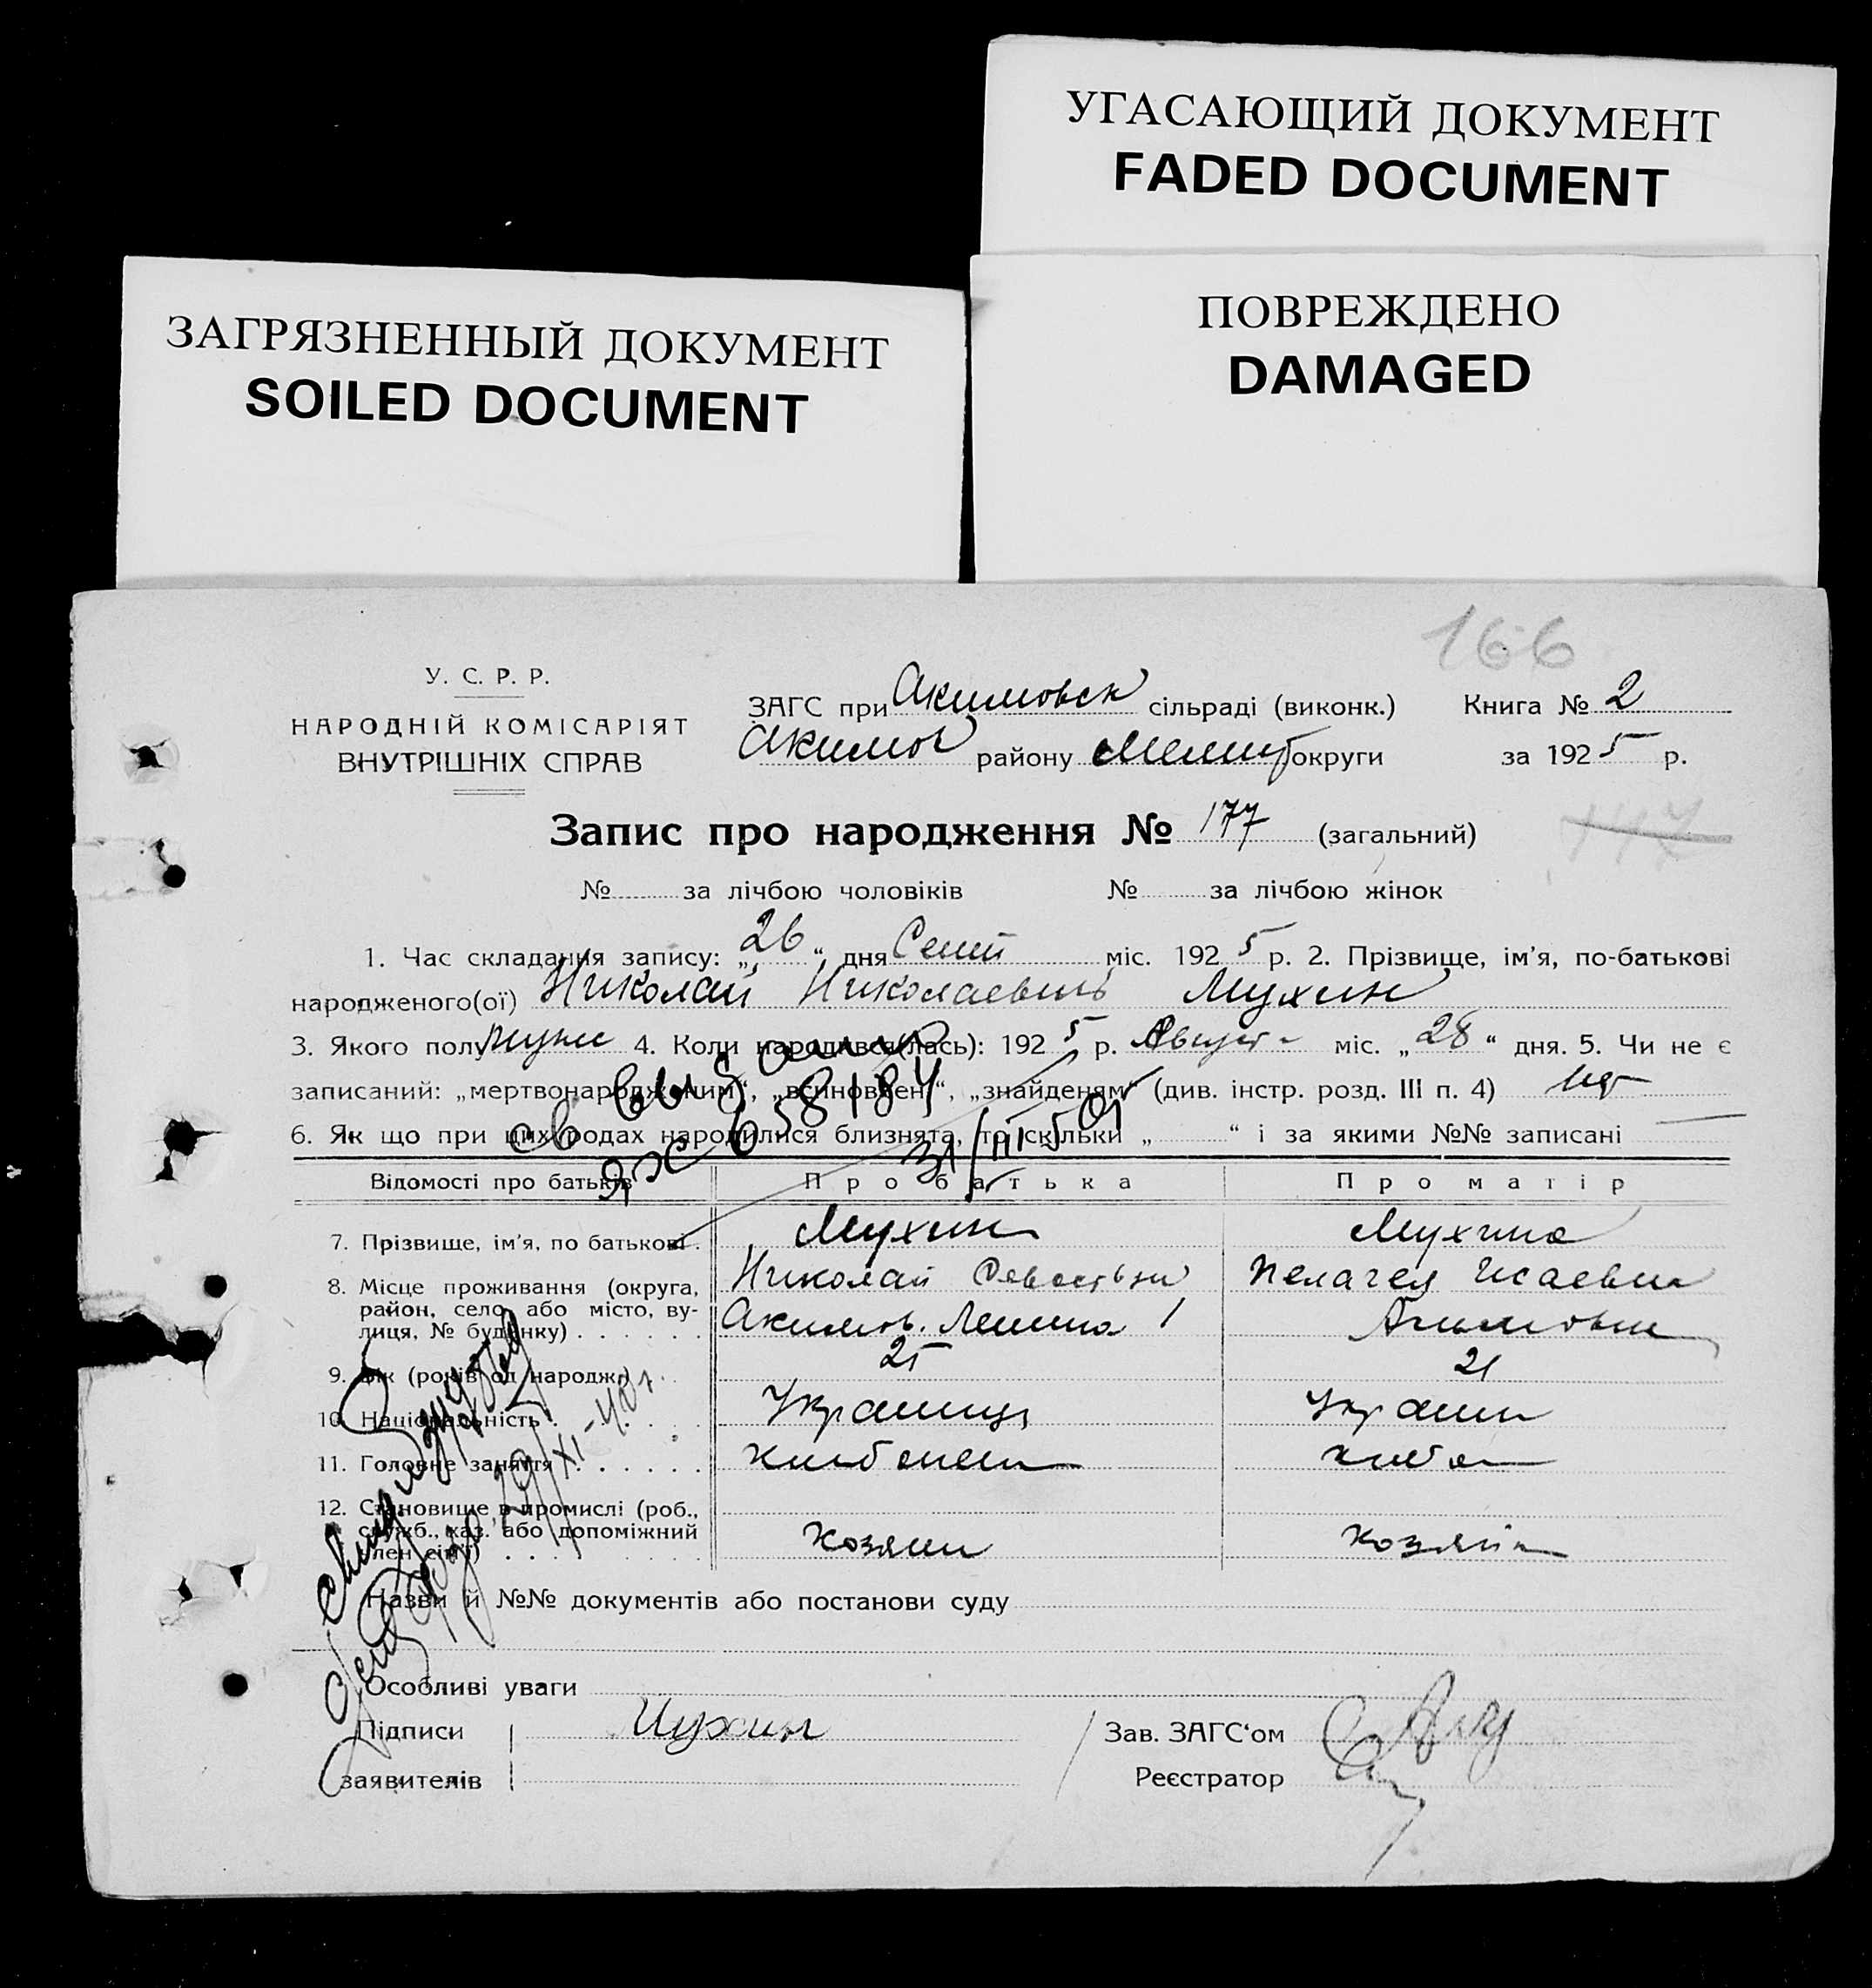 УГАСАЮЩИЙ ДОКУМЕНТ
FADED DOCUMENT
ЗАГРЯЗНЕННЫЙ ДОКУМЕНТ
SOILED DOCUMENT
ПОВРЕЖДЕНО
DAMAGED
166
У. С. Р. Р.
НАРОДНІЙ КОМІСАРІЯТ
ВНУТРІШНІХ СПРАВ
ЗАГС при Акимовск сільраді (виконк.) Книга № 2
Акимов району Мелит округи за 1925 р.
Запис про народження № 177 (загальний)
117
№ за лічбою чоловіків № за лічбою жінок
1. Час складання запису: „26“ дня Сент міс. 1925 р. 2. Прізвище, ім'я, по-батькові
народженого(ої) Николай Николаевич Мухин
3. Якого полу муж 4. Коли народився(лась): 1925 р. Август міс. „28“ дня. 5. Чи не є
записаний: „мертвонародженим“, „всиновлен“, „знайденям“ (див. інстр. розд. III п. 4) нет
6. Як що при цих родах народилися близнята, то скільки „ “ і за якими №№ записані
св выдано
ЯЖ 658184
31/III 50
Відомості про батьків Про батька Про матір
7. Прізвище, ім'я, по батькові . Мухин Мухина
Николай Пелагея Исаевна
8. Місце проживання (округа, район, село, або місто, вулиця, № будинку) . . . . . . Акимов. Ленина 1 Акимовка
9. Вік (років од народж.) . . 25 21
10. Національність . . . . Украинц Украин
11. Головне заняття . . . . . . Хлебопаш Хлебоп
12. Становище в промислі (роб., служб., хаз. або допоміжний член сім'ї) . . . . Хозяин Хозяйн
29/XI-40 г.
Назви й №№ документів або постанови суду
Особливі уваги
Підписи Мухин Зав. ЗАГС'ом
заявителів Реєстратор